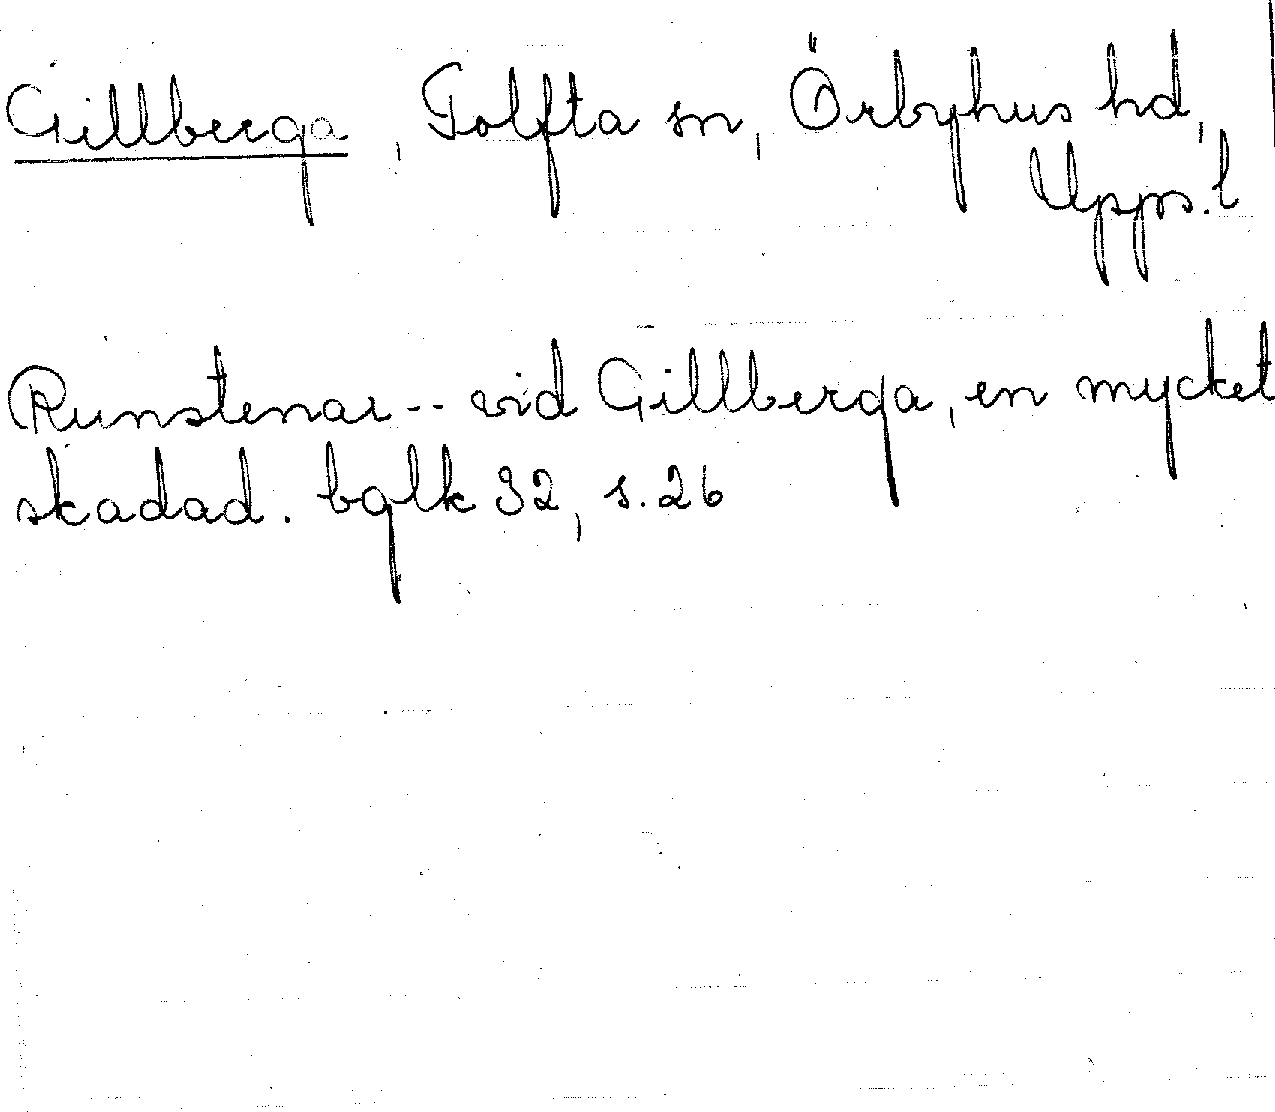 Gillberga, Tolfta sn, Örbyhus hd,
Upps. l
Runstenar -- vid Gillberga, en mycket
skadad. bglk 32, s. 26